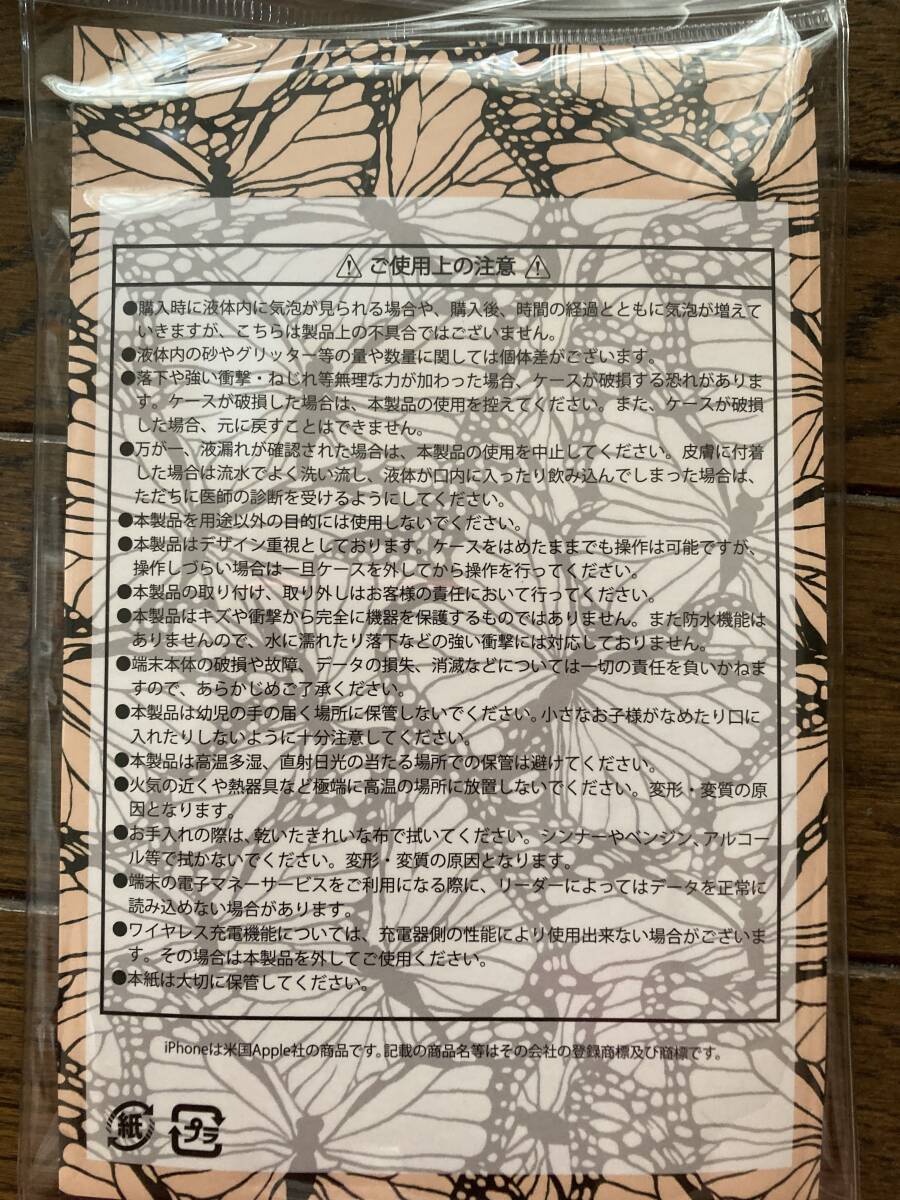 ⚠ ご使用上の注意 ⚠
●購入時に液体内に気泡が見られる場合や、購入後、時間の経過とともに気泡が増えて
いきますが、こちらは製品上の不具合ではございません。
●液体内の砂やグリッター等の量や数量に関しては個体差がございます。
●落下や強い衝撃・ねじれ等無理な力が加わった場合、ケースが破損する恐れがありま
す。ケースが破損した場合は、本製品の使用を控えてください。また、ケースが破損
した場合、元に戻すことはできません。
●万が一、液漏れが確認された場合は、本製品の使用を中止してください。皮膚に付着
した場合は流水でよく洗い流し、液体が口内に入ったり飲み込んでしまった場合は、
ただちに医師の診断を受けるようにしてください。
●本製品を用途以外の目的には使用しないでください。
●本製品はデザイン重視としております。ケースをはめたままでも操作は可能ですが、
操作しづらい場合は一旦ケースを外してから操作を行ってください。
●本製品の取り付け、取り外しはお客様の責任において行ってください。
●本製品はキズや衝撃から完全に機器を保護するものではありません。また防水機能は
ありませんので、水に濡れたり落下などの強い衝撃には対応しておりません。
●端末本体の破損や故障、データの損失、消滅などについては一切の責任を負いかねま
すので、あらかじめご了承ください。
●本製品は幼児の手の届く場所に保管しないでください。小さなお子様がなめたり口に
入れたりしないように十分注意してください。
●本製品は高温多湿、直射日光の当たる場所での保管は避けてください。
●火気の近くや熱器具など極端に高温の場所に放置しないでください。変形・変質の原
因となります。
●お手入れの際は、乾いたきれいな布で拭いてください。シンナーやベンジン、アルコー
ル等で拭かないでください。変形・変質の原因となります。
●端末の電子マネーサービスをご利用になる際に、リーダーによってはデータを正常に
読み込めない場合があります。
●ワイヤレス充電機能については、充電器側の性能により使用出来ない場合がございま
す。その場合は本製品を外してご使用ください。
●本紙は大切に保管してください。
iPhoneは米国Apple社の商品です。記載の商品名等はその会社の登録商標及び商標です。
紙 プラ